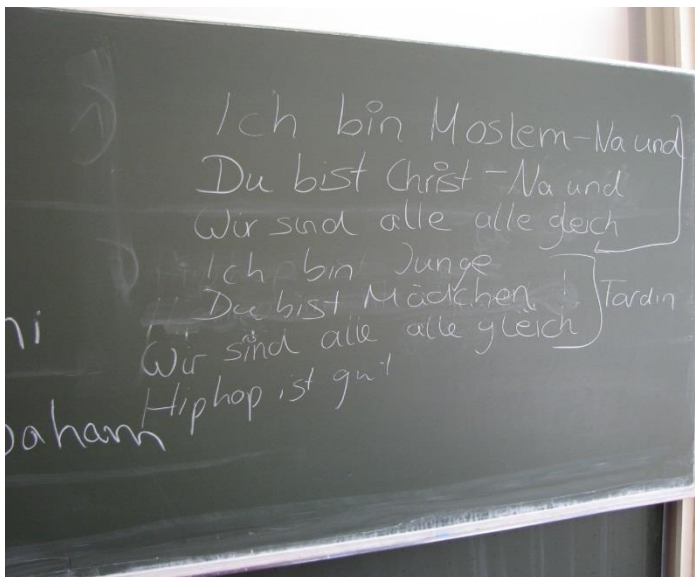 Ich bin Moslem - Na und
Du bist Christ - Na und
Wir sind alle alle gleich
Ich bin Junge
Du bist Mädchen !
Tardin
Wir sind alle alle gleich
Hiphop ist gut